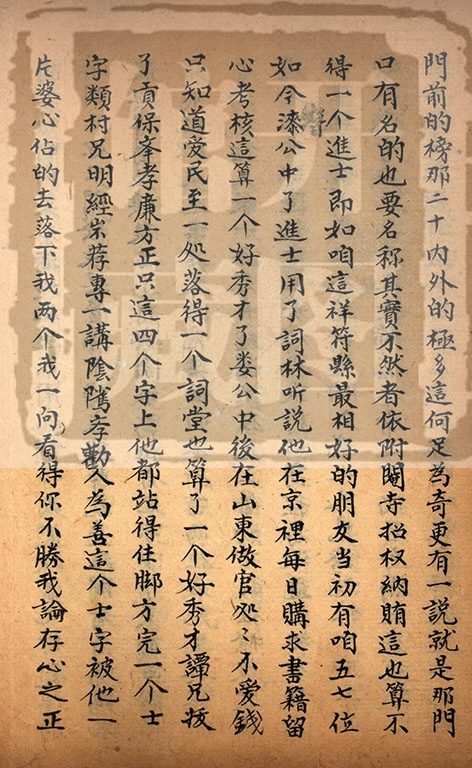 門前的榜那二十內外的極多這何足為奇更有一説就是那門
口有名的也要名称其實不然者依附閹寺招权納賄這也算不
得一个進士即如咱這祥符縣最相好的朋友当初有咱五七位
如今漆公中了進士用了詞林听説他在京裡每日購求書籍留
心考核這算一个好秀才了娄公中後在山東做官処〻不爱錢
只知道爱民至一処落得一个詞堂也算了一个好秀才譚兄拔
了貢保峯孝廉方正只這四个字上他都站得住脚方完一个士
字類村兄明經岽荐專一講陰隲孝勸人為善這个士字被他一
片婆心佔的去落下我两个我一问看得你不勝我論存心之正